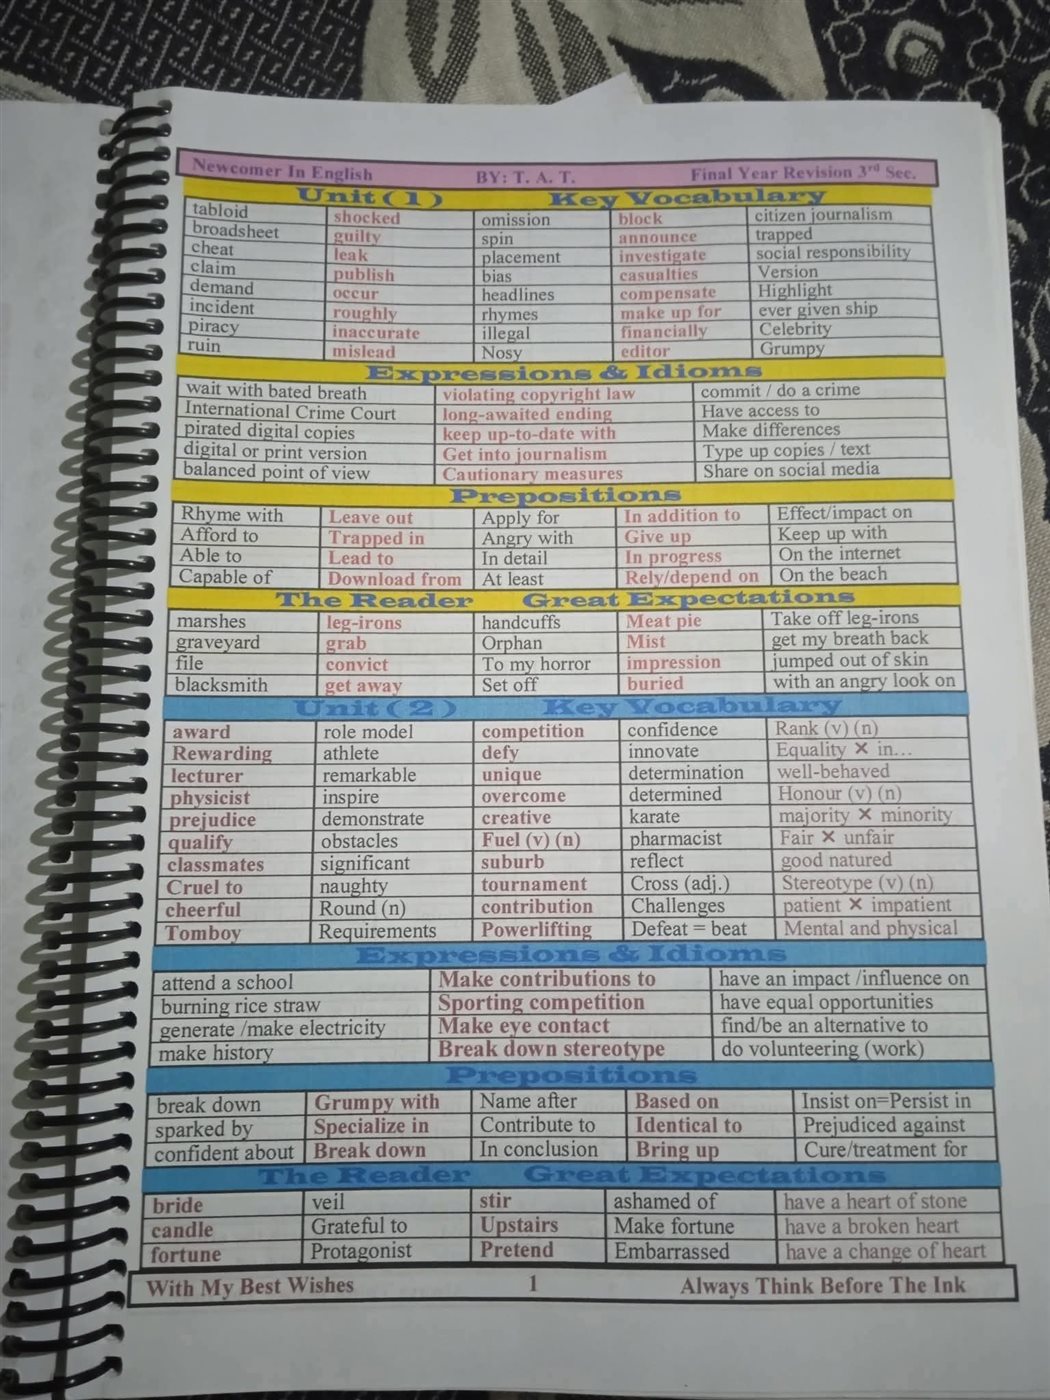 Newcomer In English BY: T. A. T. Final Year Revision 3rd Sec.
Unit ( 1 ) Key Vocabulary
tabloid shocked omission block citizen journalism
broadsheet guilty spin announce trapped
cheat leak placement investigate social responsibility
claim publish bias casualties Version
demand occur headlines compensate Highlight
incident roughly rhymes make up for ever given ship
piracy inaccurate illegal financially Celebrity
ruin mislead Nosy editor Grumpy
Expressions & Idioms
wait with bated breath violating copyright law commit / do a crime
International Crime Court long-awaited ending Have access to
pirated digital copies keep up-to-date with Make differences
digital or print version Get into journalism Type up copies / text
balanced point of view Cautionary measures Share on social media
Prepositions
Rhyme with Leave out Apply for In addition to Effect/impact on
Afford to Trapped in Angry with Give up Keep up with
Able to Lead to In detail In progress On the internet
Capable of Download from At least Rely/depend on On the beach
The Reader Great Expectations
marshes leg-irons handcuffs Meat pie Take off leg-irons
graveyard grab Orphan Mist get my breath back
file convict To my horror impression jumped out of skin
blacksmith get away Set off buried with an angry look on
Unit ( 2 ) Key Vocabulary
award role model competition confidence Rank (v) (n)
Rewarding athlete defy innovate Equality × in...
lecturer remarkable unique determination well-behaved
physicist inspire overcome determined Honour (v) (n)
prejudice demonstrate creative karate majority × minority
qualify obstacles Fuel (v) (n) pharmacist Fair × unfair
classmates significant suburb reflect good natured
Cruel to naughty tournament Cross (adj.) Stereotype (v) (n)
cheerful Round (n) contribution Challenges patient × impatient
Tomboy Requirements Powerlifting Defeat = beat Mental and physical
Expressions & Idioms
attend a school Make contributions to have an impact /influence on
burning rice straw Sporting competition have equal opportunities
generate /make electricity Make eye contact find/be an alternative to
make history Break down stereotype do volunteering (work)
Prepositions
break down Grumpy with Name after Based on Insist on=Persist in
sparked by Specialize in Contribute to Identical to Prejudiced against
confident about Break down In conclusion Bring up Cure/treatment for
The Reader Great Expectations
bride veil stir ashamed of have a heart of stone
candle Grateful to Upstairs Make fortune have a broken heart
fortune Protagonist Pretend Embarrassed have a change of heart
With My Best Wishes 1 Always Think Before The Ink